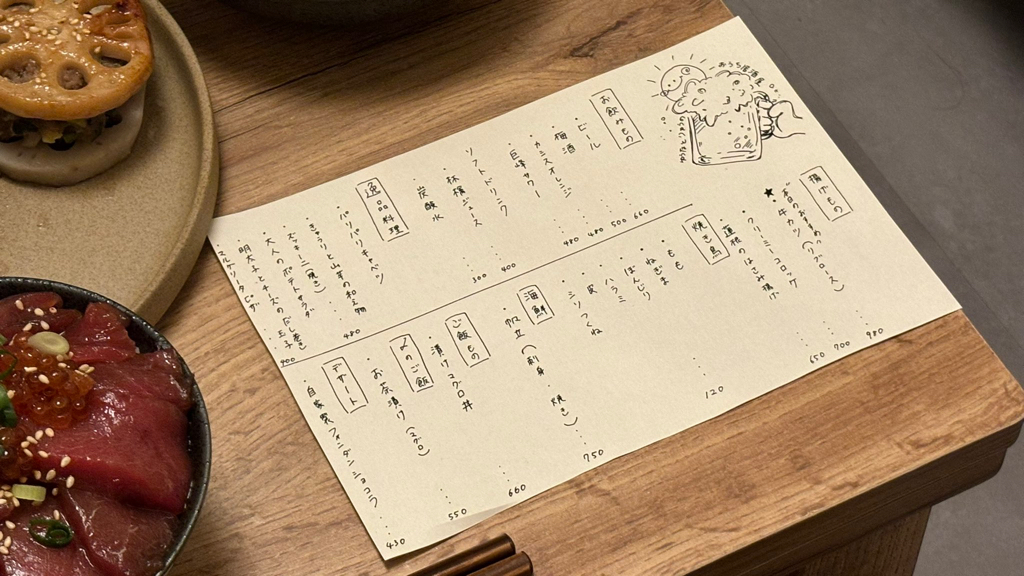 おうち居酒屋
お飲みもの
・ビール 660
・梅酒 500
・カシスオレンジ 480
・巨峰サワー 480
・ソフトドリンク 400
・林檎ジュース 300
・炭酸水
逸品料理
・パリパリキャベツ 480
・きゅうりと山芋の和え物
・ズッキーニ(焼き)
・大人のポテトサラダ
・明太子とチーズのだし巻き玉子 900
揚げもの
★本日のおすすめ
牛カツ 980
・クリーミーコロッケ 700
・蓮根のはさみ揚げ 650
焼き鳥
・もも
・ねぎま
・ぼんじり
・ハラミ
・皮
・シソつくね 120
海鮮
・帆立(刺身・焼き) 750
ご飯もの
・漬けマグロ丼 660
〆のご飯
・お茶漬け 550
デザート
・自家製フォンダンショコラ 430